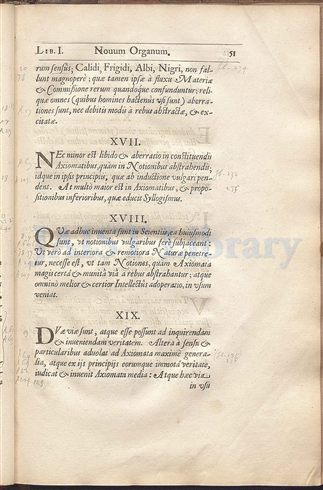 LIB. I. Nouum Organum. 51
rum sensûs, Calidi, Frigidi, Albi, Nigri, non fal-
lunt magnoperè; quæ tamen ipsæ à fluxu Materiæ
& Commistione rerum quandoque confunduntur; reli-
quæ omnes (quibus homines hactenùs vsi sunt) aberra-
tiones sunt, nec debitis modis à rebus abstractæ, & ex-
citatæ.
XVII.
NEc minor est libido & aberratio in constituendis
Axiomatibus, quàm in Notionibus abstrahendis;
idque in ipsis principijs, quæ ab inductione vulgari pen-
dent. At multò maior est in Axiomatibus, & propo-
sitionibus inferioribus, quæ educit Syllogismus.
XVIII.
QVæ adhuc inuenta sunt in Scientijs, ea huiusmodi
sunt, vt notionibus vulgaribus ferè subiaceant:
Vt verò ad interiora & remotiora Naturæ penetre-
tur, necesse est, vt tam Notiones, quàm Axiomata
magis certâ & munitâ viâ à rebus abstrahantur; atque
omninò melior & certior Intellectûs adoperatio, in vsum
veniat.
XIX.
DVæ viæ sunt, atque esse possunt ad inquirendam
& inueniendam veritatem. Altera à sensu &
particularibus aduolat ad Axiomata maximè genera-
lia, atque ex ijs principijs eorumque immotâ veritate,
iudicat & inuenit Axiomata media: Atque hæc via
in vsu
Library